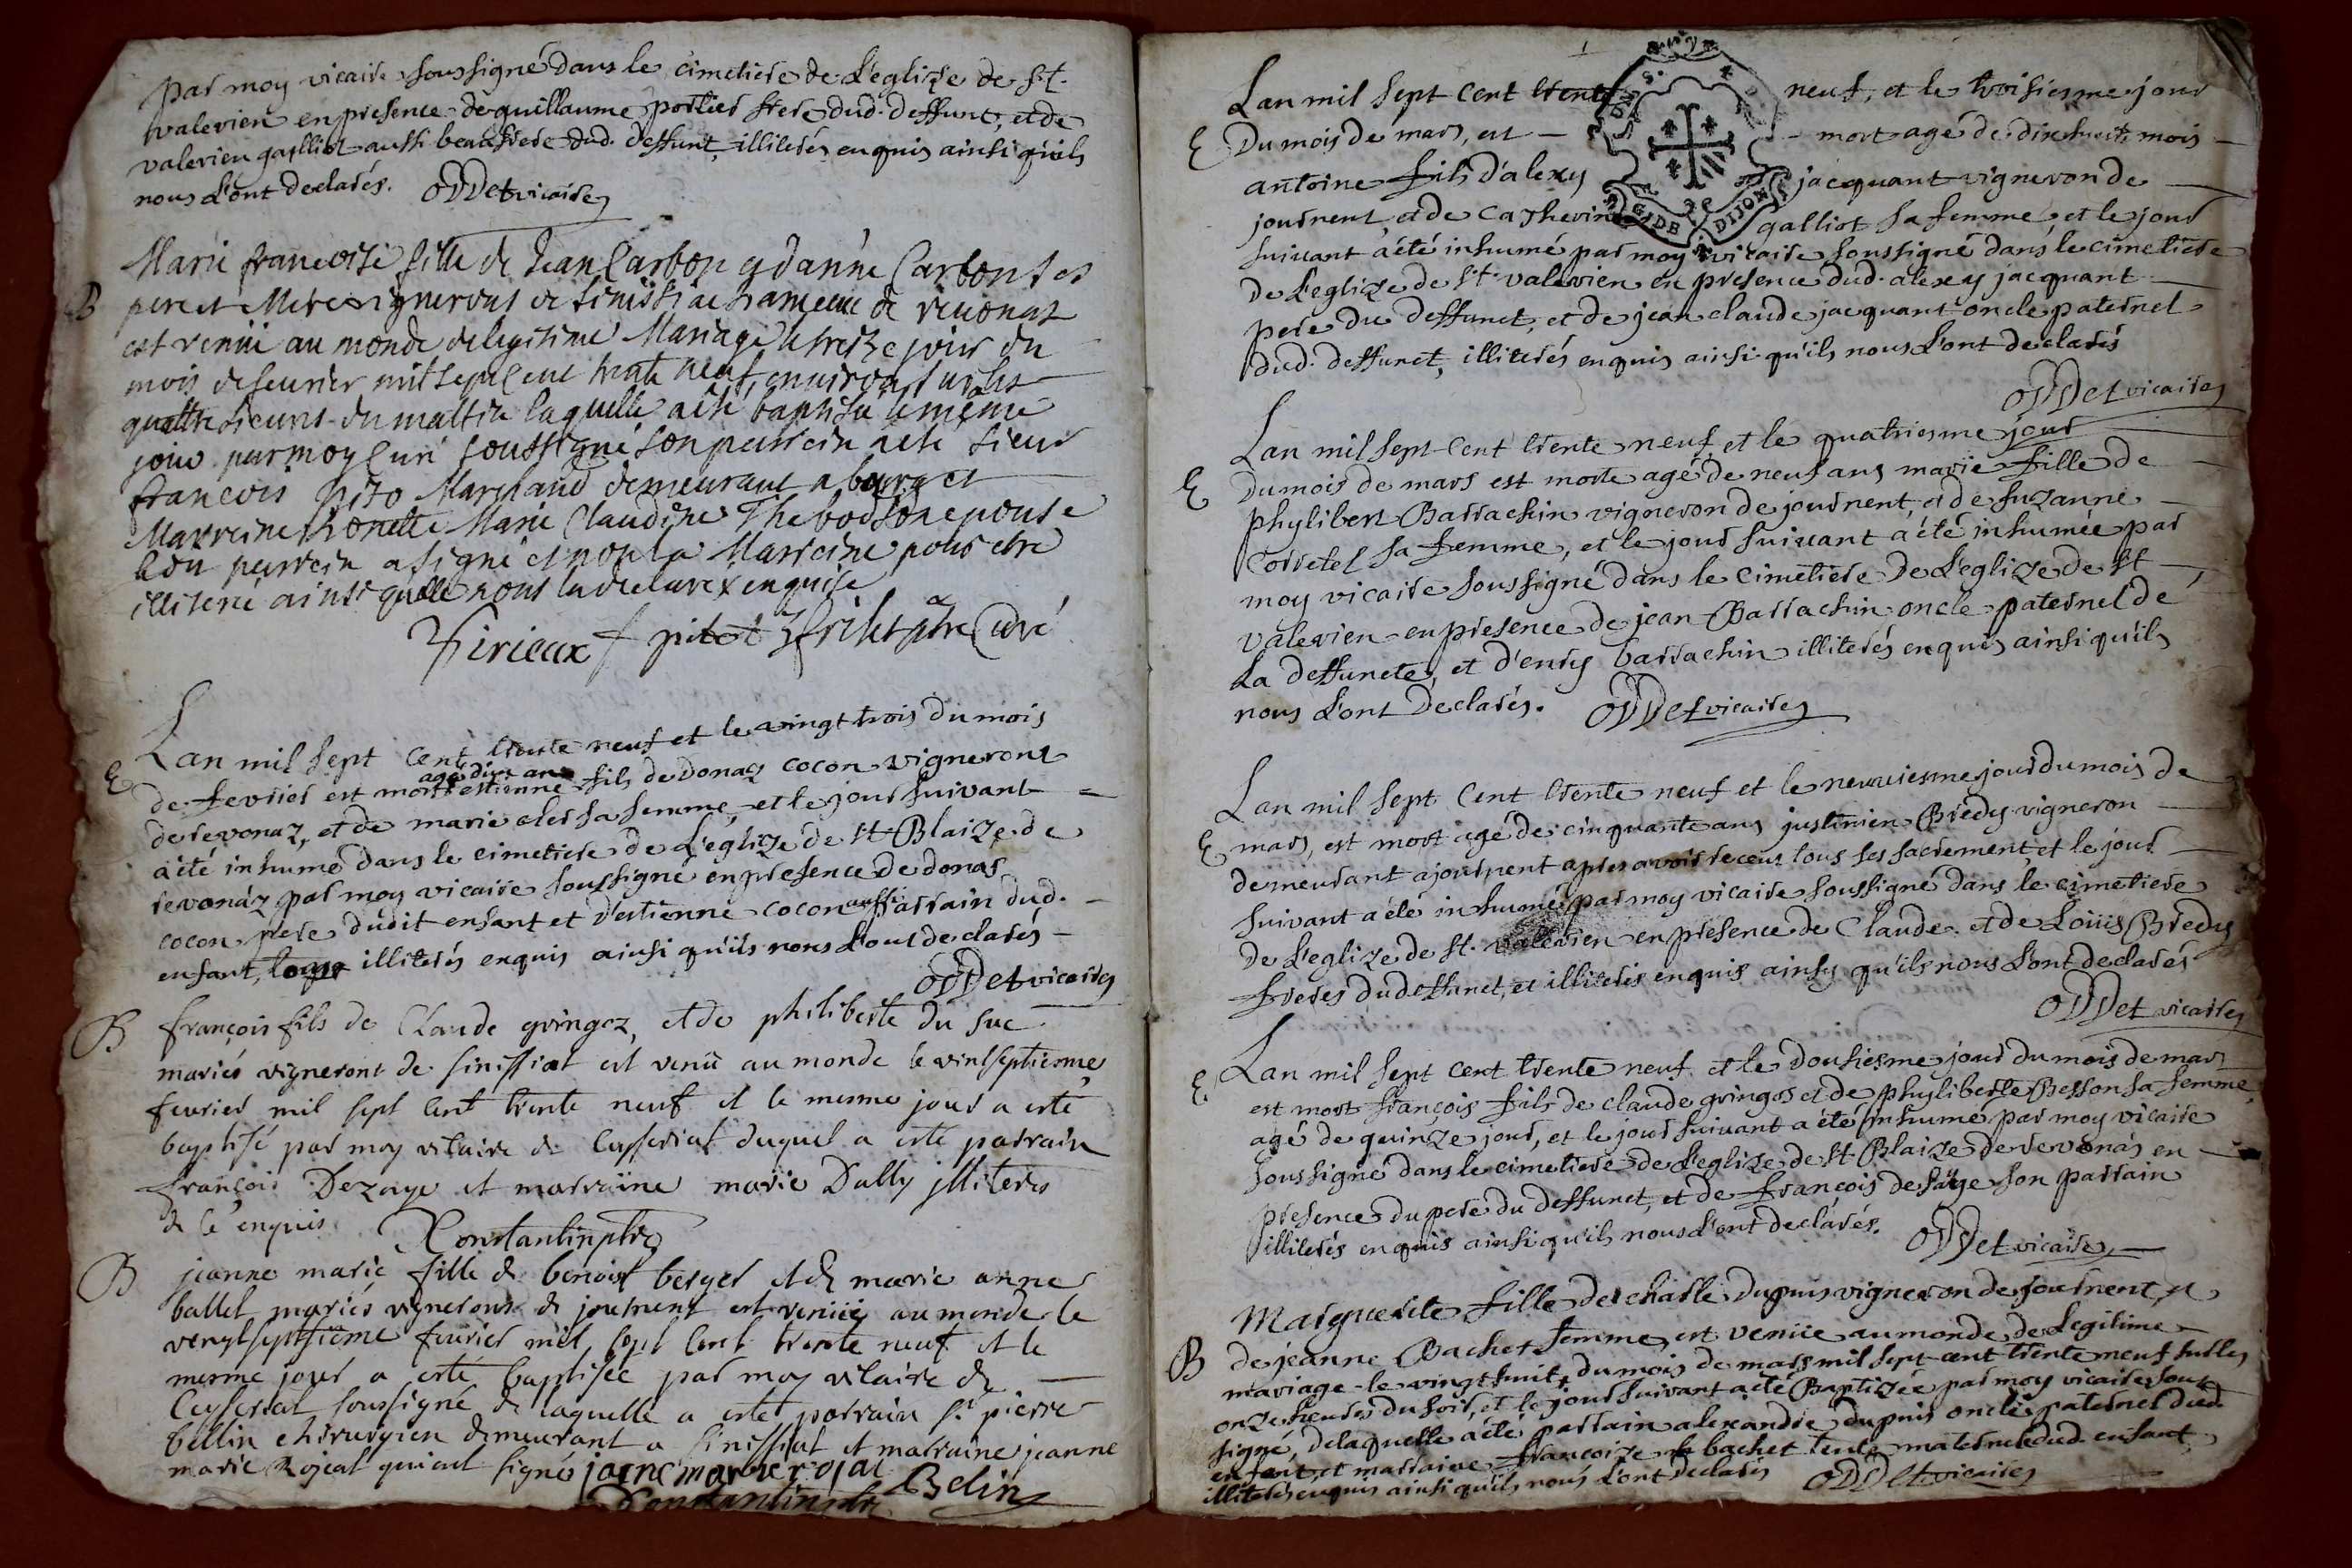 par moy vicaire soussigné dans le cimetiere de L'eglize de st.
valerien en presence de guillaume portier frere dud. deffunt, et de
valerien galliot aussi beaufrere dud. deffunt, illiterés enquis ainsi qu'ils
nous L'ont declarés. ODDet vicaire
Marie francoise fille de Jean Carbon et d'anne Carbon ses
B
pere et Mere vignerons de Sinissia hameau de revonas
est venüe au monde de legitime Mariage le treize jour du
mois de feuvrier mil sept cent trente neuf, environ sur les
quattre heures du mattin laquelle a été baptisée le même
jour par moy Curé soussigné son parrein a été sieur
francois pito Marchand demeurant a bourg et
Marreine honette Marie Claudine Thebod son epouse
Ledit parrein a signé et non la Marreine pour etre
illiterée ainsi qu'elle nous la declaré enquise
f pitot frilet ptre Curé
Lan mil sept Cent trente neuf et le vingt trois du mois
E
agé dix ans
de fevrier est mort estienne fils de Donaz cocon vigneront
de revonaz, et de marie cler sa femme, et le jour suivant
a été inhumé dans le cimetiere de L'églize de St Blaize de
revonáz par moy vicaire soussigné en presence de donas
cocon pere dudit enfant et d'estienne cocon aussi parrain dud.
enfant, illiterés enquis ainsi qu'ils nous L'ont declarés
ODDet vicaire
B
françois fils de Claude gringoz, et de philiberte du suc
mariés vigneront de sinissiat est venü au monde le vintseptiesme
feuvrier mil sept cent trente neuf et le mesme jour a esté
baptisé par moy vicaire de Ceysseriat duquel a esté parrain
françois Dezaye et marraine marie Dally illiteres
de ce enquis Constantin ptre
B
jeanne marie fille de benoist berger et de marie anne
ballet mariés vignerons de journent est venüe au monde le
vengtseptsieme feuvrier mil sept cent trente neuf et le
mesme jour a esté baptisée par moy vicaire de
Ceyseriat soussigné de laquelle a esté parrain sr. pierre
bellin chirurgien demeurant a sinissiat et marraine jeanne
marie Rojeat qui ont signé jaene marie rojat
Constantin ptre Belin
1
Lan mil sept Cent trente neuf, et le troisiesme jour
E
Du mois de mars, est mort agé de dixhuit mois
antoine fils d'alexy jacquant vigneron de
journent, et de Catherine galliot sa femme, et le jour
GEN. DE DIJON
suivant a été inhumé par moy vicaire soussigné dans le cimetiere
De L'eglize de St. valerien en presence dud. alexy jacquant
pere du deffunct, et de jean claude jacquant oncle paternel
dud. deffunct, illiterés enquis ainsi qu'ils nous L'ont declarés
ODDet vicaire
Lan mil sept Cent trente neuf, et le quatriesme jour
E
du mois de mars est morte agé de neuf ans marie fille de
phylibert Barrachin vigneron de journent, et de suzanne
Corretel sa femme, et le jour suivant a été inhumée par
moy vicaire soussigné dans le Cimetiere De L'eglize de St
valerien en presence de jean Barrachin oncle paternel de
La deffuncte, et d'enry barrachin illiterés enquis ainsi qu'ils
nous L'ont Declarés. ODDet vicaire
Lan mil sept Cent trente neuf et le neuviesme jour du mois de
E
mars, est mort agé de cinquante ans justinien Bredy vigneron
demeurant a journent apres avoir receu tous ses sacrement, et le jour
suivant a été inhumé par moy vicaire soussigné dans le cimetiere
De L'eglize de St. valerien en presence de Claude. et de Loüis Bredy
freres du deffunct, et illiterés enquis ainsy qu'ils nous L'ont declarés
ODDet vicaire
Lan mil sept cent trente neuf et le douhiesme jour du mois de mars
E
est mort françois fils de claude gringos et de phyliberte Besson sa femme,
agé de quinze jour, et le jour suivant a été inhumé par moy vicaire
soussigné dans le cimetiere de L'eglize de St Blaize de revonás en
presence du pere du deffunct, et de françois desaye son parrain
illiterés enquis ainsi qu'ils nous L'ont declarés. ODDet vicaire
Marguerite fille de charle dupuis vigneron de journent, et
B
de jeanne Bachet femme, est venüe au monde de Legitime
mariage le vingt huit, du mois de mars mil sept cent trente neuf sur les
onze heures du soir, et le jour suivant a été Baptizée par moy vicaire sous
signé, de laquelle a été parrain alexandre dupuis oncle paternel dud.
enfant, et marraine françoize bachet tente maternele dud. enfant
illiterés enquis ainsi qu'ils nous L'ont declarés ODDet vicaire